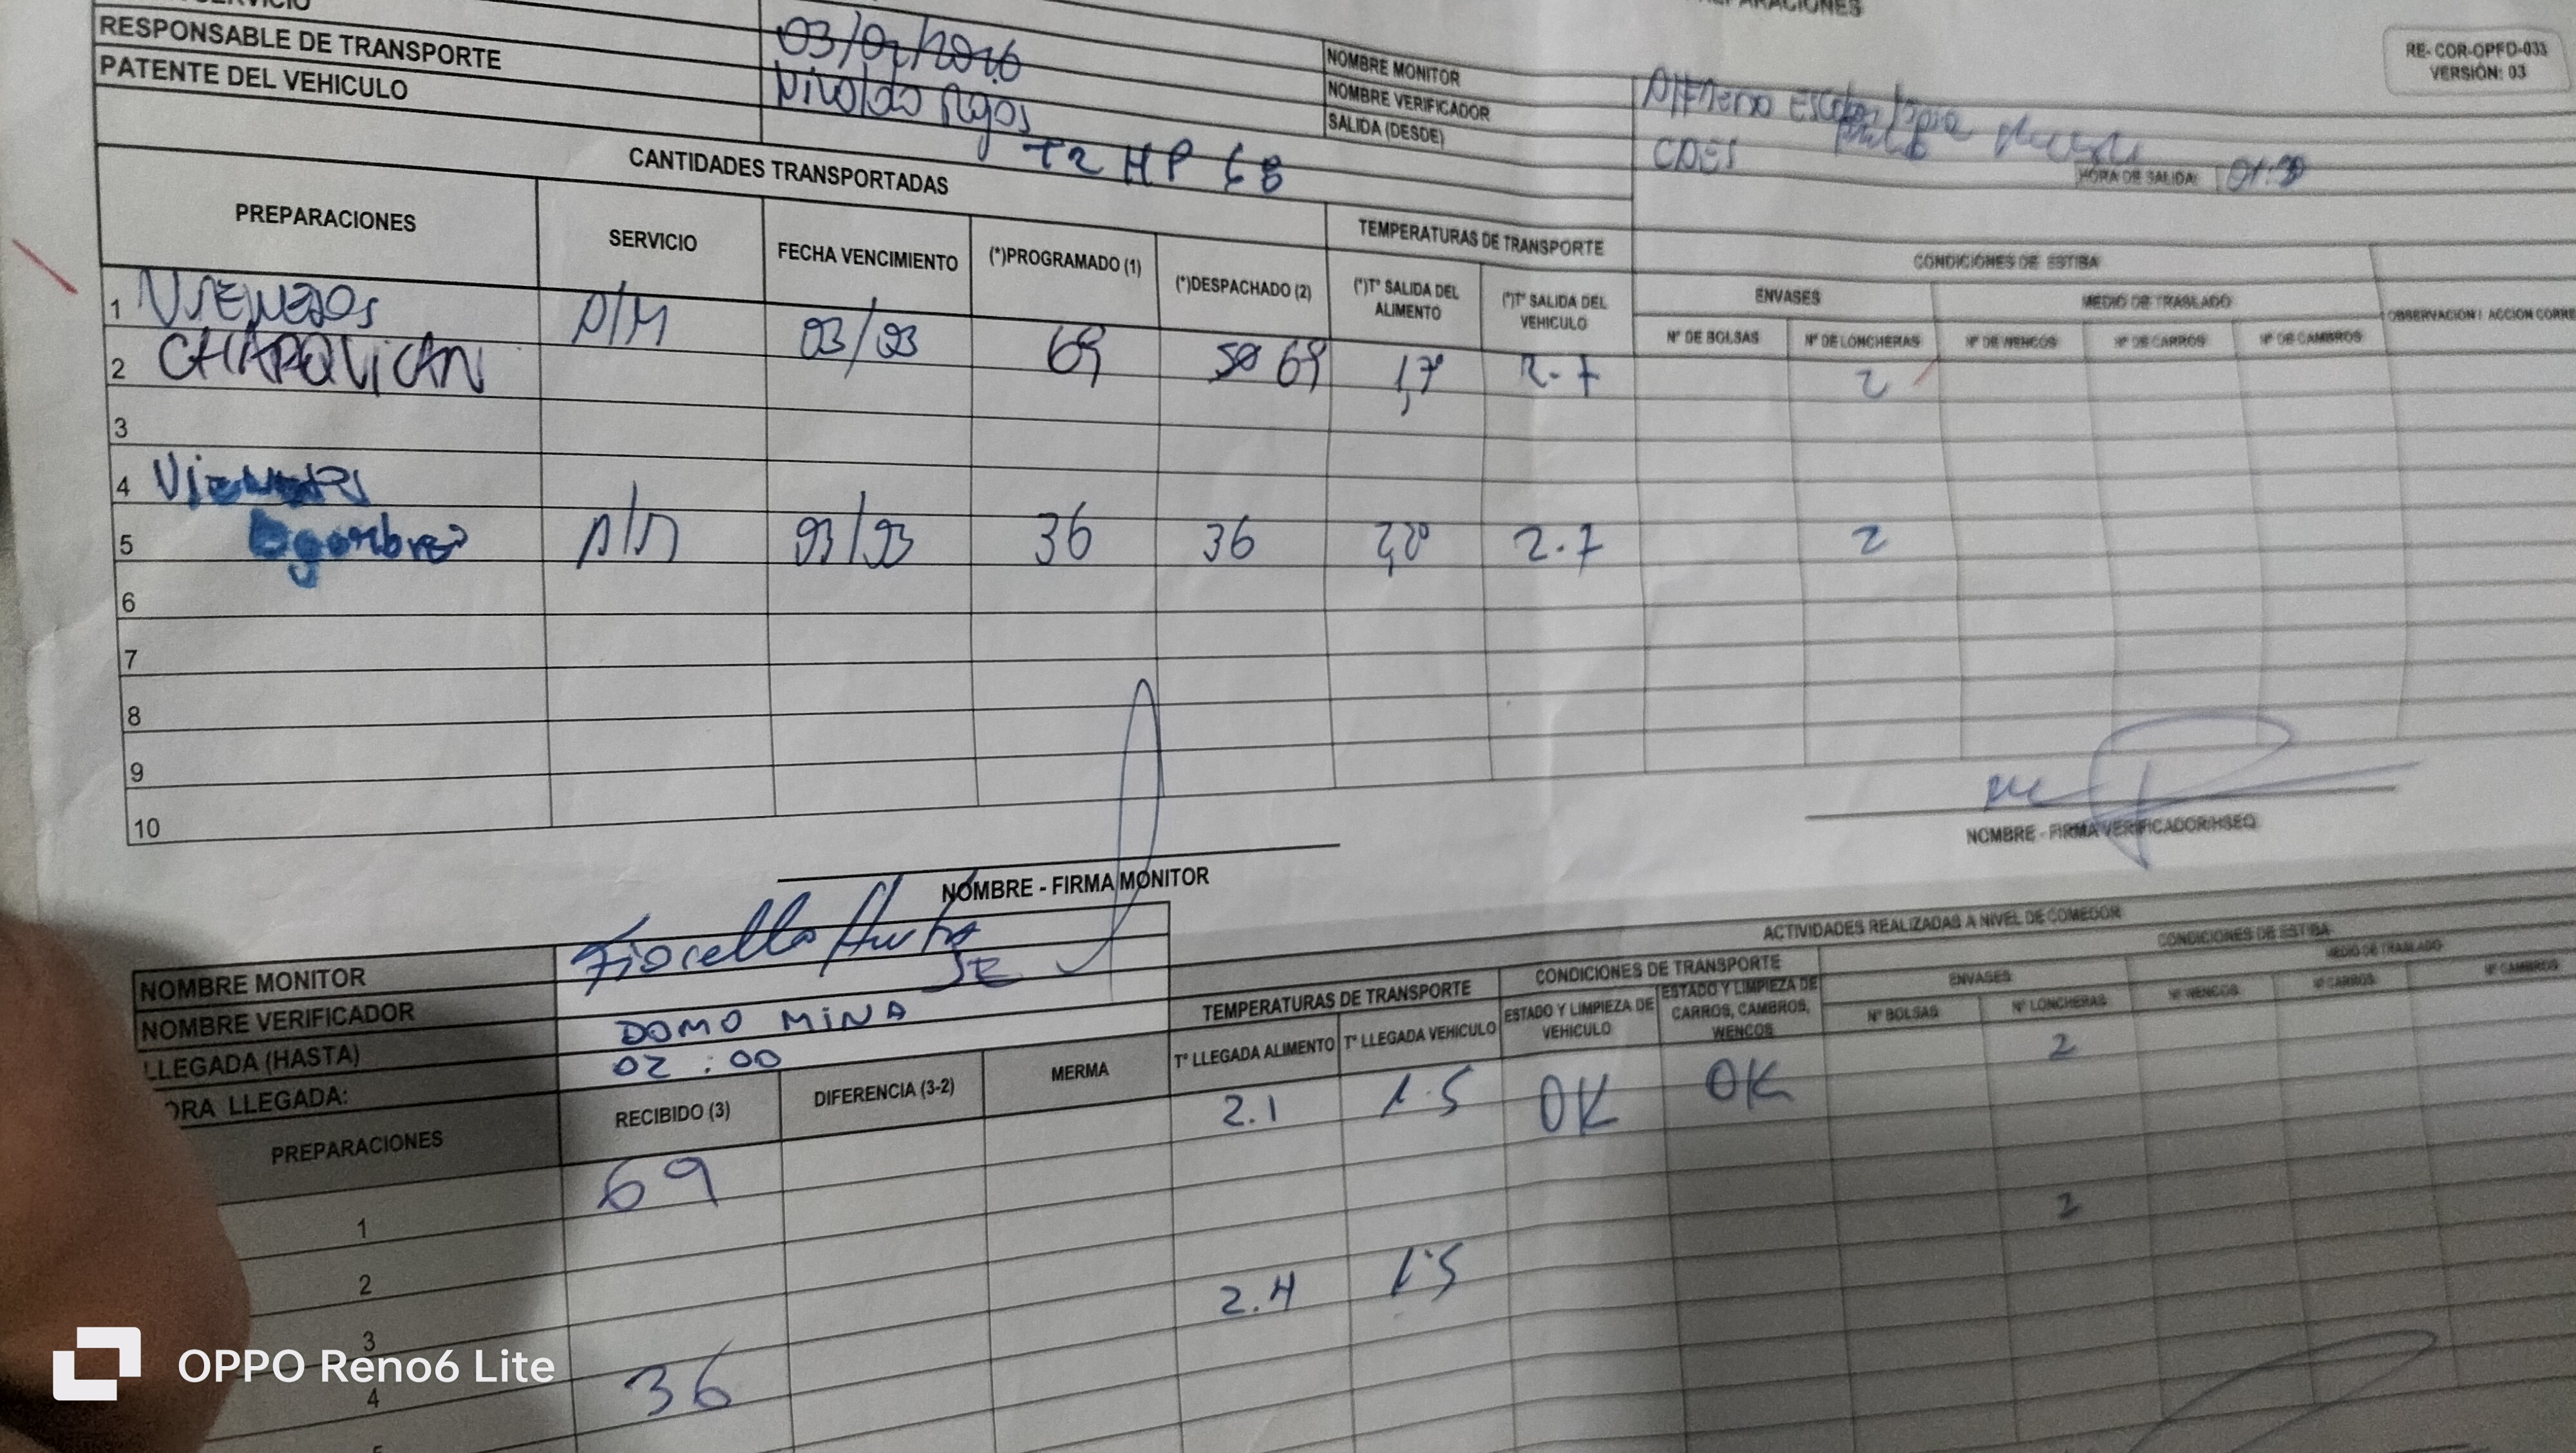 SERVICIO
PARACIONES
RE- COR-OPFD-033
VERSIÓN: 03
RESPONSABLE DE TRANSPORTE
PATENTE DEL VEHICULO
T2 HP 68
NOMBRE MONITOR
NOMBRE VERIFICADOR
SALIDA (DESDE)
HORA DE SALIDA:
CANTIDADES TRANSPORTADAS
TEMPERATURAS DE TRANSPORTE
CONDICIONES DE ESTIBA
PREPARACIONES SERVICIO FECHA VENCIMIENTO (*)PROGRAMADO (1) (*)DESPACHADO (2) (*)T° SALIDA DEL ALIMENTO (*)T° SALIDA DEL VEHICULO
ENVASES MEDIO DE TRASLADO OBSERVACION / ACCION CORRE
N° DE BOLSAS N° DE LONCHERAS N° DE WENCOS N° DE CARROS N° DE CAMBROS
1
2 CHARQUICAN 03/03 69 69 2.7 2
3
4
5 03/03 36 36 2.7 2
6
7
8
9
10
NOMBRE - FIRMA MONITOR
NOMBRE - FIRMA VERIFICADOR/HSEQ
ACTIVIDADES REALIZADAS A NIVEL DE COMEDOR
NOMBRE MONITOR Fiorella
NOMBRE VERIFICADOR
LLEGADA (HASTA) DOMO MINA
ORA LLEGADA: 02:00
TEMPERATURAS DE TRANSPORTE CONDICIONES DE TRANSPORTE CONDICIONES DE ESTIBA
ENVASES MEDIO DE TRASLADO
PREPARACIONES RECIBIDO (3) DIFERENCIA (3-2) MERMA T° LLEGADA ALIMENTO T° LLEGADA VEHICULO ESTADO Y LIMPIEZA DE VEHICULO ESTADO Y LIMPIEZA DE CARROS, CAMBROS, WENCOS N° BOLSAS N° LONCHERAS N° WENCOS N° CARROS N° CAMBROS
1 69 2.1 1.5 OK OK 2
2
3
4 36 2.4 1.5 2
5
OPPO Reno6 Lite